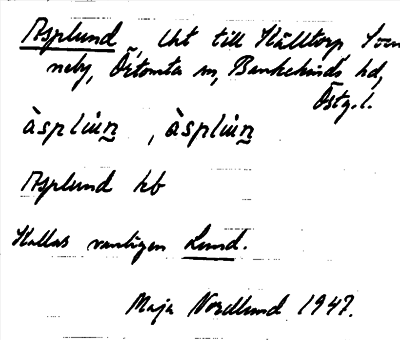 Asplund, lht till Hälltorp, Sven
neby, Örtomta sn, Bankekinds hd,
Östg. l.
àspluṉ , àspluṉ
Asplund hb
Kallas vanligen Lund.
Maja Nordlund 1947.